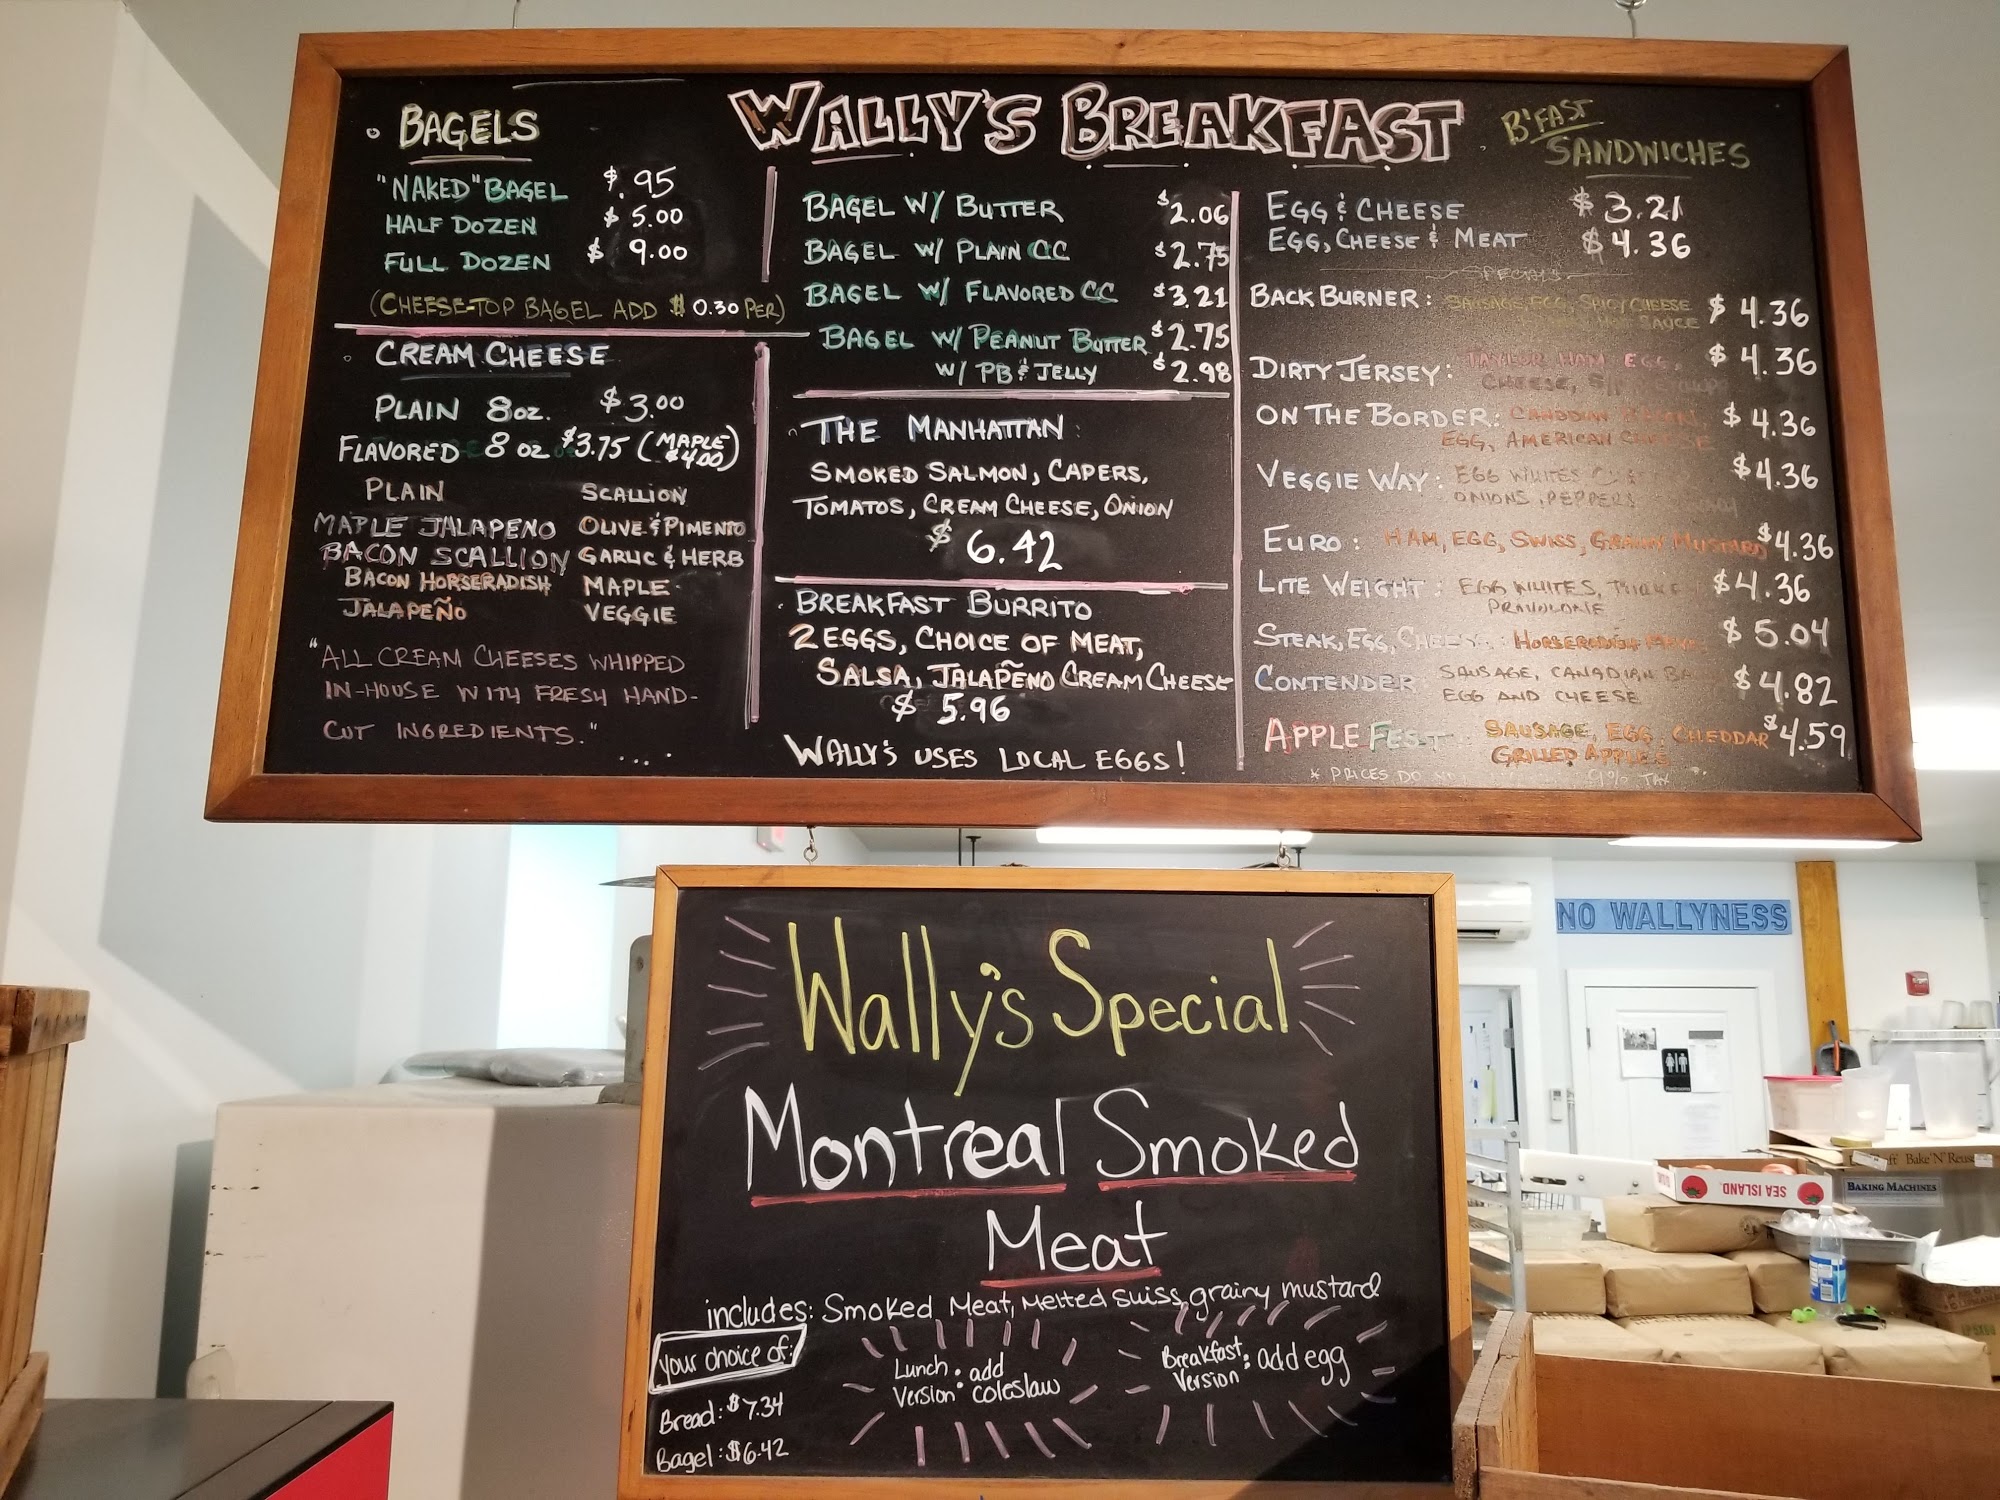 BAGELS
"NAKED" BAGEL $.95
HALF DOZEN $ 5.00
FULL DOZEN $ 9.00
(CHEESE-TOP BAGEL ADD $ 0.30 PER)
CREAM CHEESE
PLAIN 8oz. $3.00
FLAVORED 8 oz $3.75 (MAPLE
$4.00)
PLAIN
MAPLE JALAPENO
BACON SCALLION
BACON HORSERADISH
JALAPEÑO
SCALLION
OLIVE & PIMENTO
GARLIC & HERB
MAPLE
VEGGIE
"ALL CREAM CHEESES WHIPPED
IN-HOUSE WITH FRESH HAND-
CUT INGREDIENTS."
WALLY'S BREAKFAST
BAGEL W/ BUTTER $2.06
BAGEL W/ PLAIN CC $2.75
BAGEL W/ FLAVORED CC $3.21
BAGEL W/ PEANUT BUTTER $2.75
W/ PB & JELLY $2.98
THE MANHATTAN
SMOKED SALMON, CAPERS,
TOMATOS, CREAM CHEESE, ONION
$ 6.42
BREAKFAST BURRITO
2 EGGS, CHOICE OF MEAT,
SALSA, JALAPEÑO CREAM CHEESE
$ 5.96
WALLY'S USES LOCAL EGGS!
B'FAST
SANDWICHES
EGG & CHEESE $3.21
EGG, CHEESE & MEAT $4.36
SPECIALS
BACK BURNER: SAUSAGE, EGG, SPICY CHEESE $ 4.36
SAUCE
DIRTY JERSEY: TAYLOR HAM, EGG, $ 4.36
CHEESE,
ON THE BORDER: CANADIAN BACON, $4.36
EGG, AMERICAN CHEESE
VEGGIE WAY: EGG WHITES $4.36
ONIONS, PEPPERS
EURO: HAM, EGG, SWISS, GRAIN MUSTARD $4.36
LITE WEIGHT: EGG WHITES, $4.36
PROVOLONE
STEAK, EGG, CHEESE: HORSERADISH $ 5.04
CONTENDER SAUSAGE, CANADIAN $4.82
EGG AND CHEESE
APPLE FEST: SAUSAGE, EGG, CHEDDAR $4.59
GRILLED APPLES
* PRICES DO 9% TAX
Wally's Special
Montreal Smoked
Meat
includes: Smoked Meat, Melted Swiss, grainy mustard
your choice of:
Bread: $7.34
Bagel: $6.42
Lunch : add
Version coleslaw
Breakfast : add egg
Version
NO WALLYNESS
Restrooms
SEA ISLAND
Bake 'N' Reuse
BAKING MACHINES